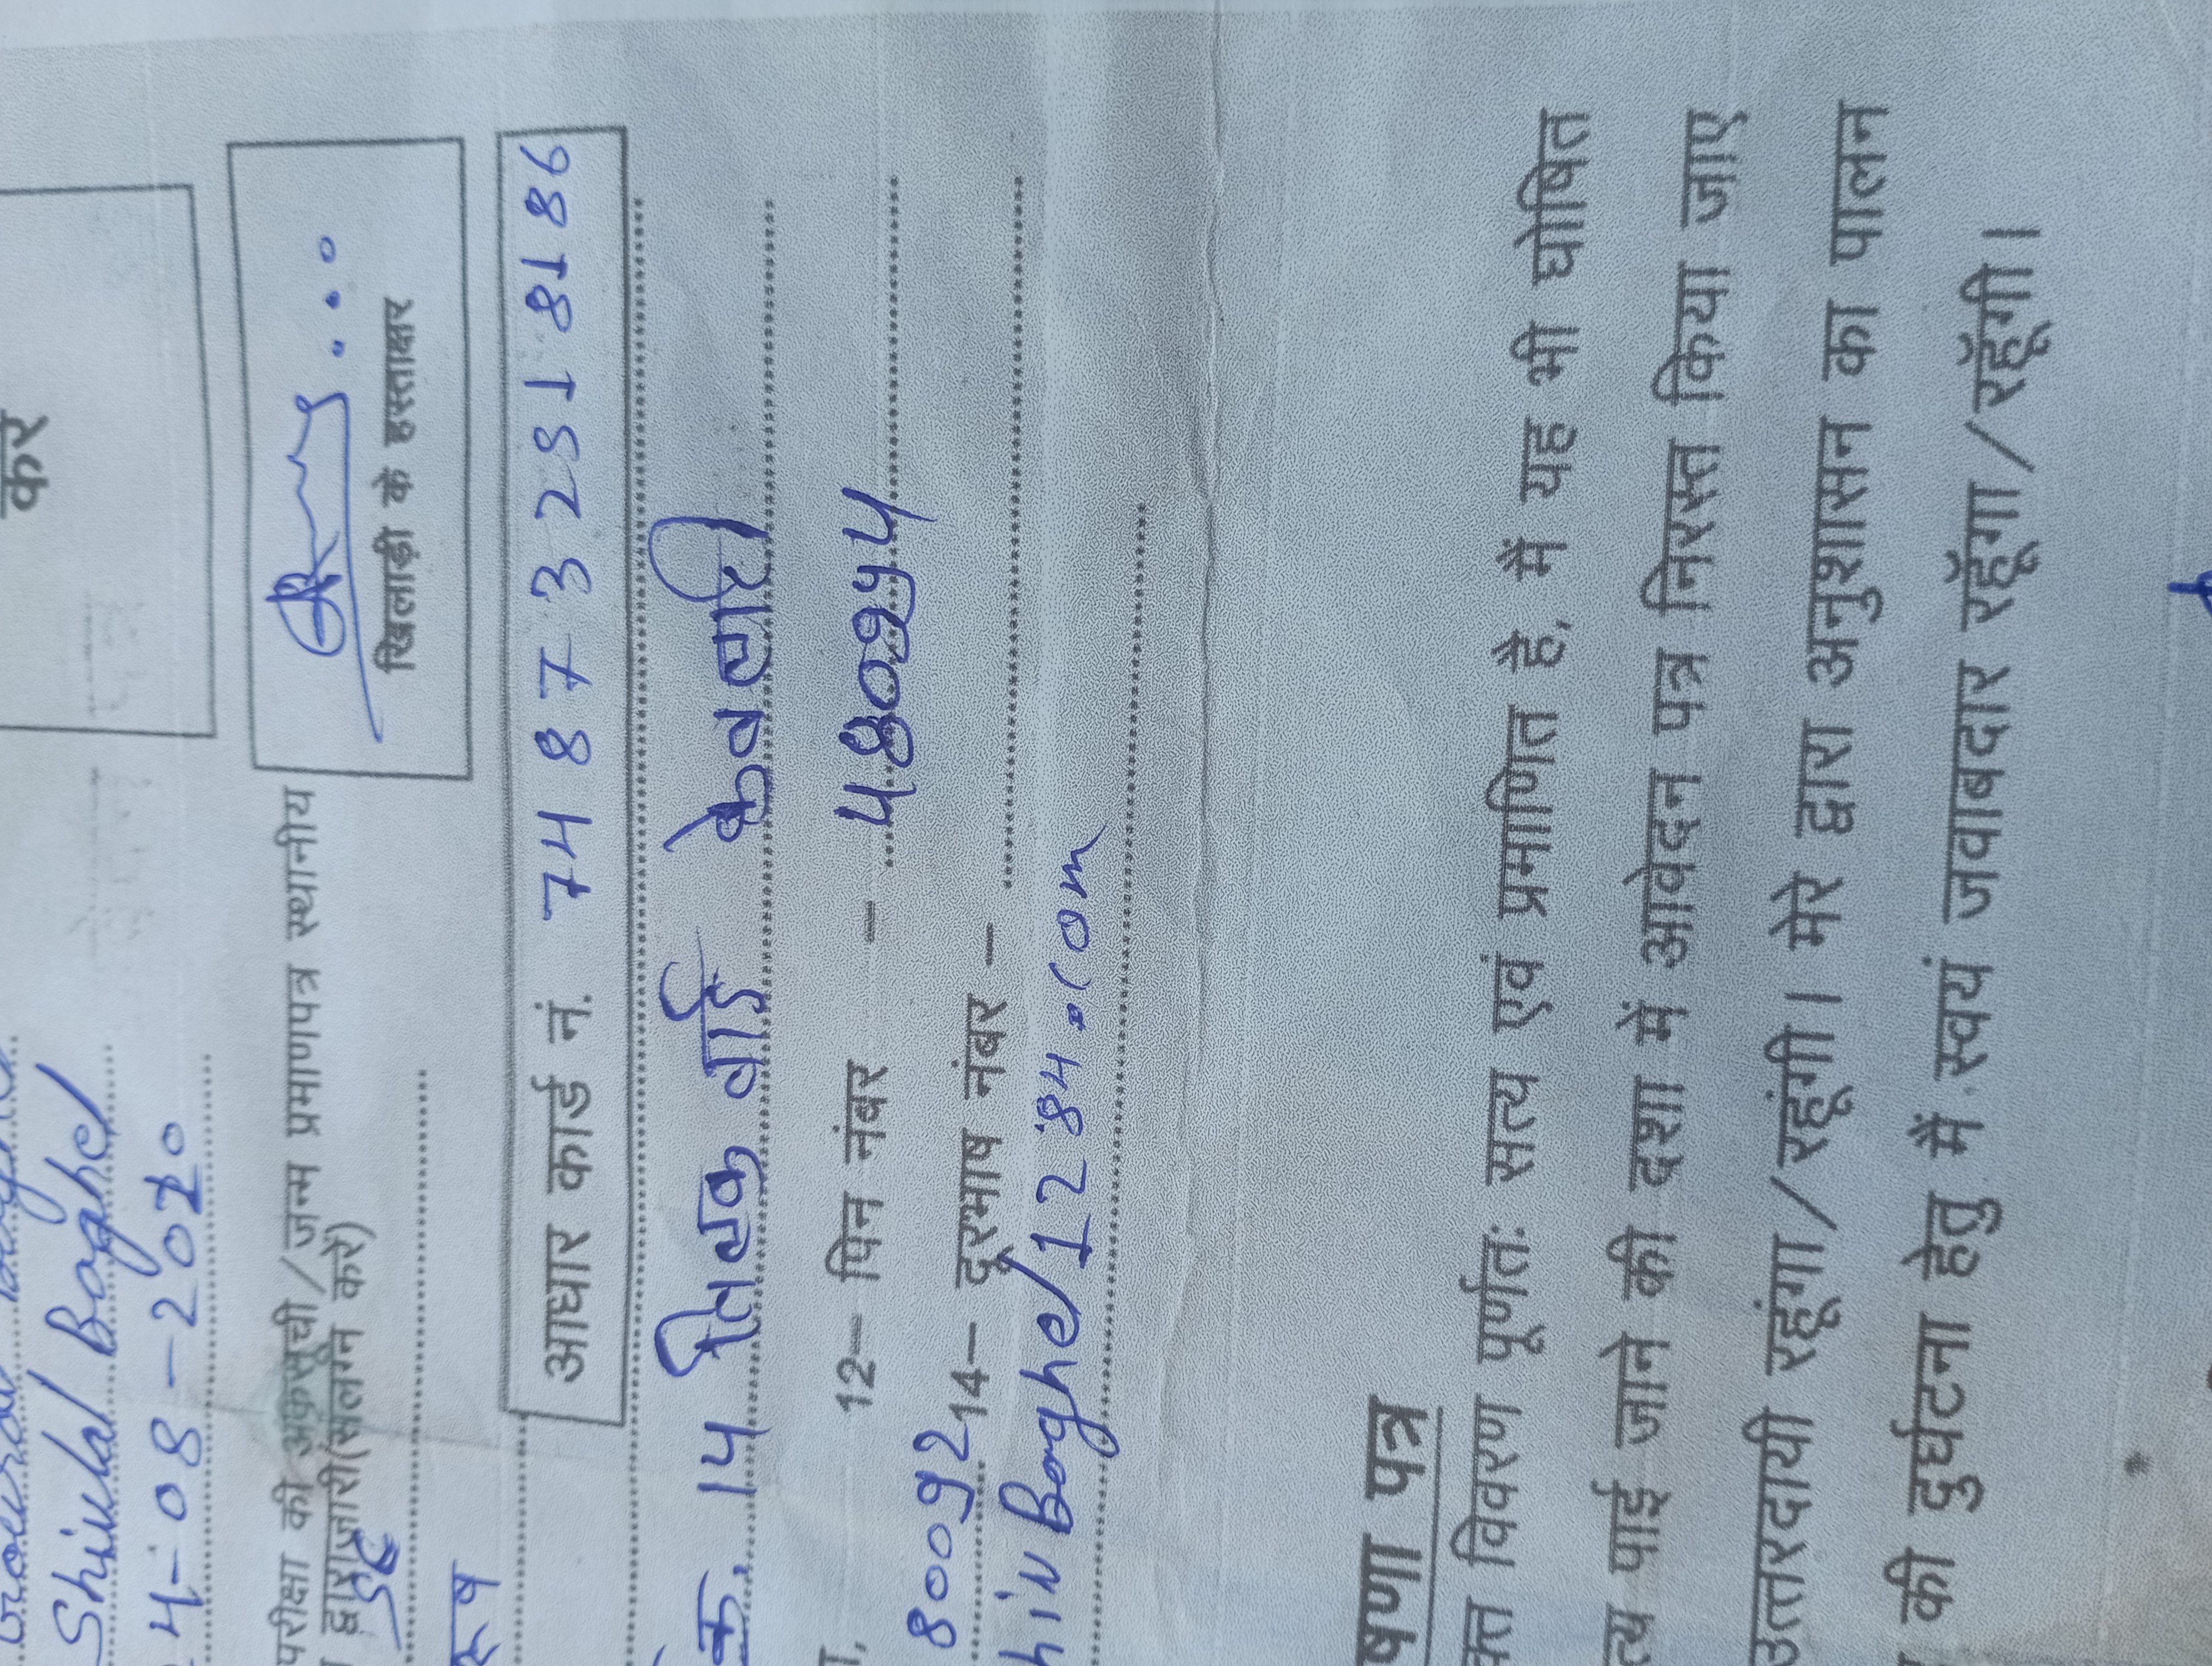 करें
Shivlal Baghel
4-08-2010
खिलाड़ी के हस्ताक्षर
परीक्षा की अंकसूची/जन्म प्रमाणपत्र स्थानीय
द्वारा जारी(संलग्न करें)
आधार कार्ड नं. 748732518186
क्र. 14 तिलक वार्ड केवलारी
12— पिन नंबर — 480994
80092 14— दूरभाष नंबर —
hiv Baghel1284.com
षणा पत्र
क्त विवरण पूर्णतः सत्य एवं प्रमाणित है, मैं यह भी घोषित
त्य पाई जाने की दशा में आवेदन पत्र निरस्त किया जाए
उत्तरदायी रहूंगा/रहूंगी। मेरे द्वारा अनुशासन का पालन
की दुर्घटना हेतु मैं स्वयं जवाबदार रहूँगा/रहूँगी।